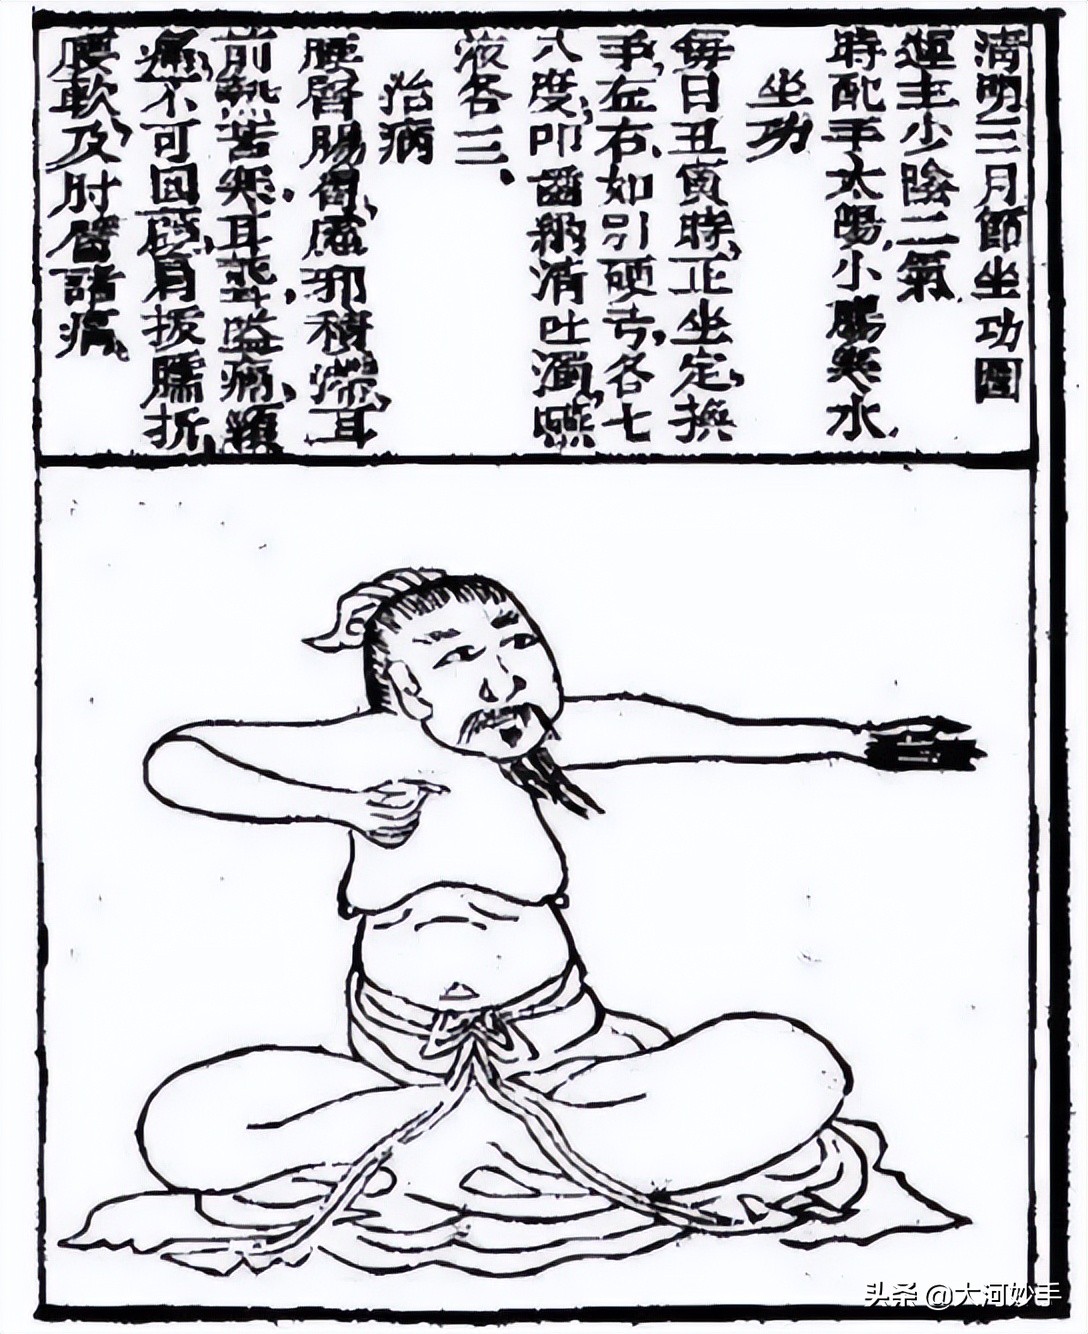 清明三月節坐功圖
運主少陰二氣
時配手太陽小腸寒水
坐功
每日丑寅時正坐定換
手左右如引硬弓各七
八度叩齒納清吐濁嚥
液各三、
治病
腰腎腸胃虛邪積滯耳
前熱苦寒耳聾嗌痛頸
痛不可回顧肩拔臑折
腰軟及肘臂諸痛
头条 @大河妙手